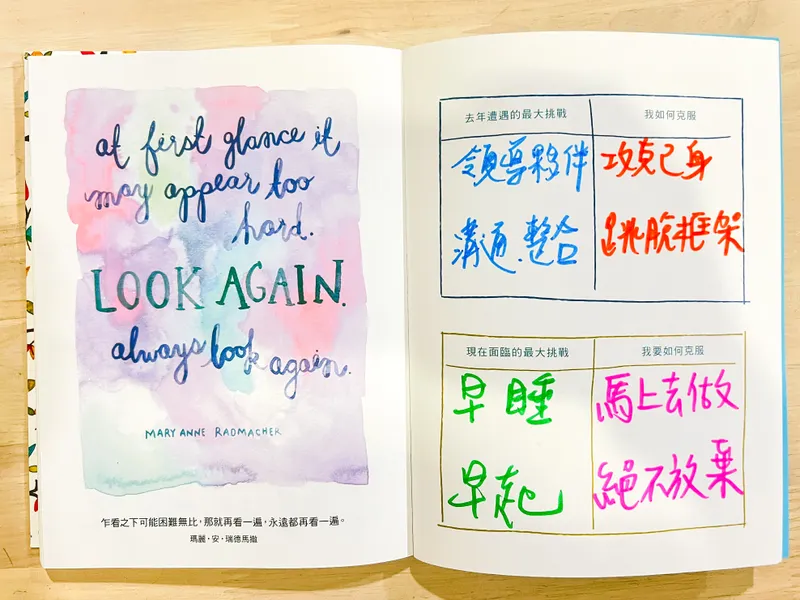 at first glance it
may appear too
hard.
LOOK AGAIN.
always look again.
MARY ANNE RADMACHER
乍看之下可能困難無比，那就再看一遍，永遠都再看一遍。
瑪麗・安・瑞德馬徹
去年遭遇的最大挑戰 我如何克服
領導夥伴 攻克己身
溝通.整合 跳脫框架
現在面臨的最大挑戰 我要如何克服
早睡 馬上去做
早起 絕不放棄